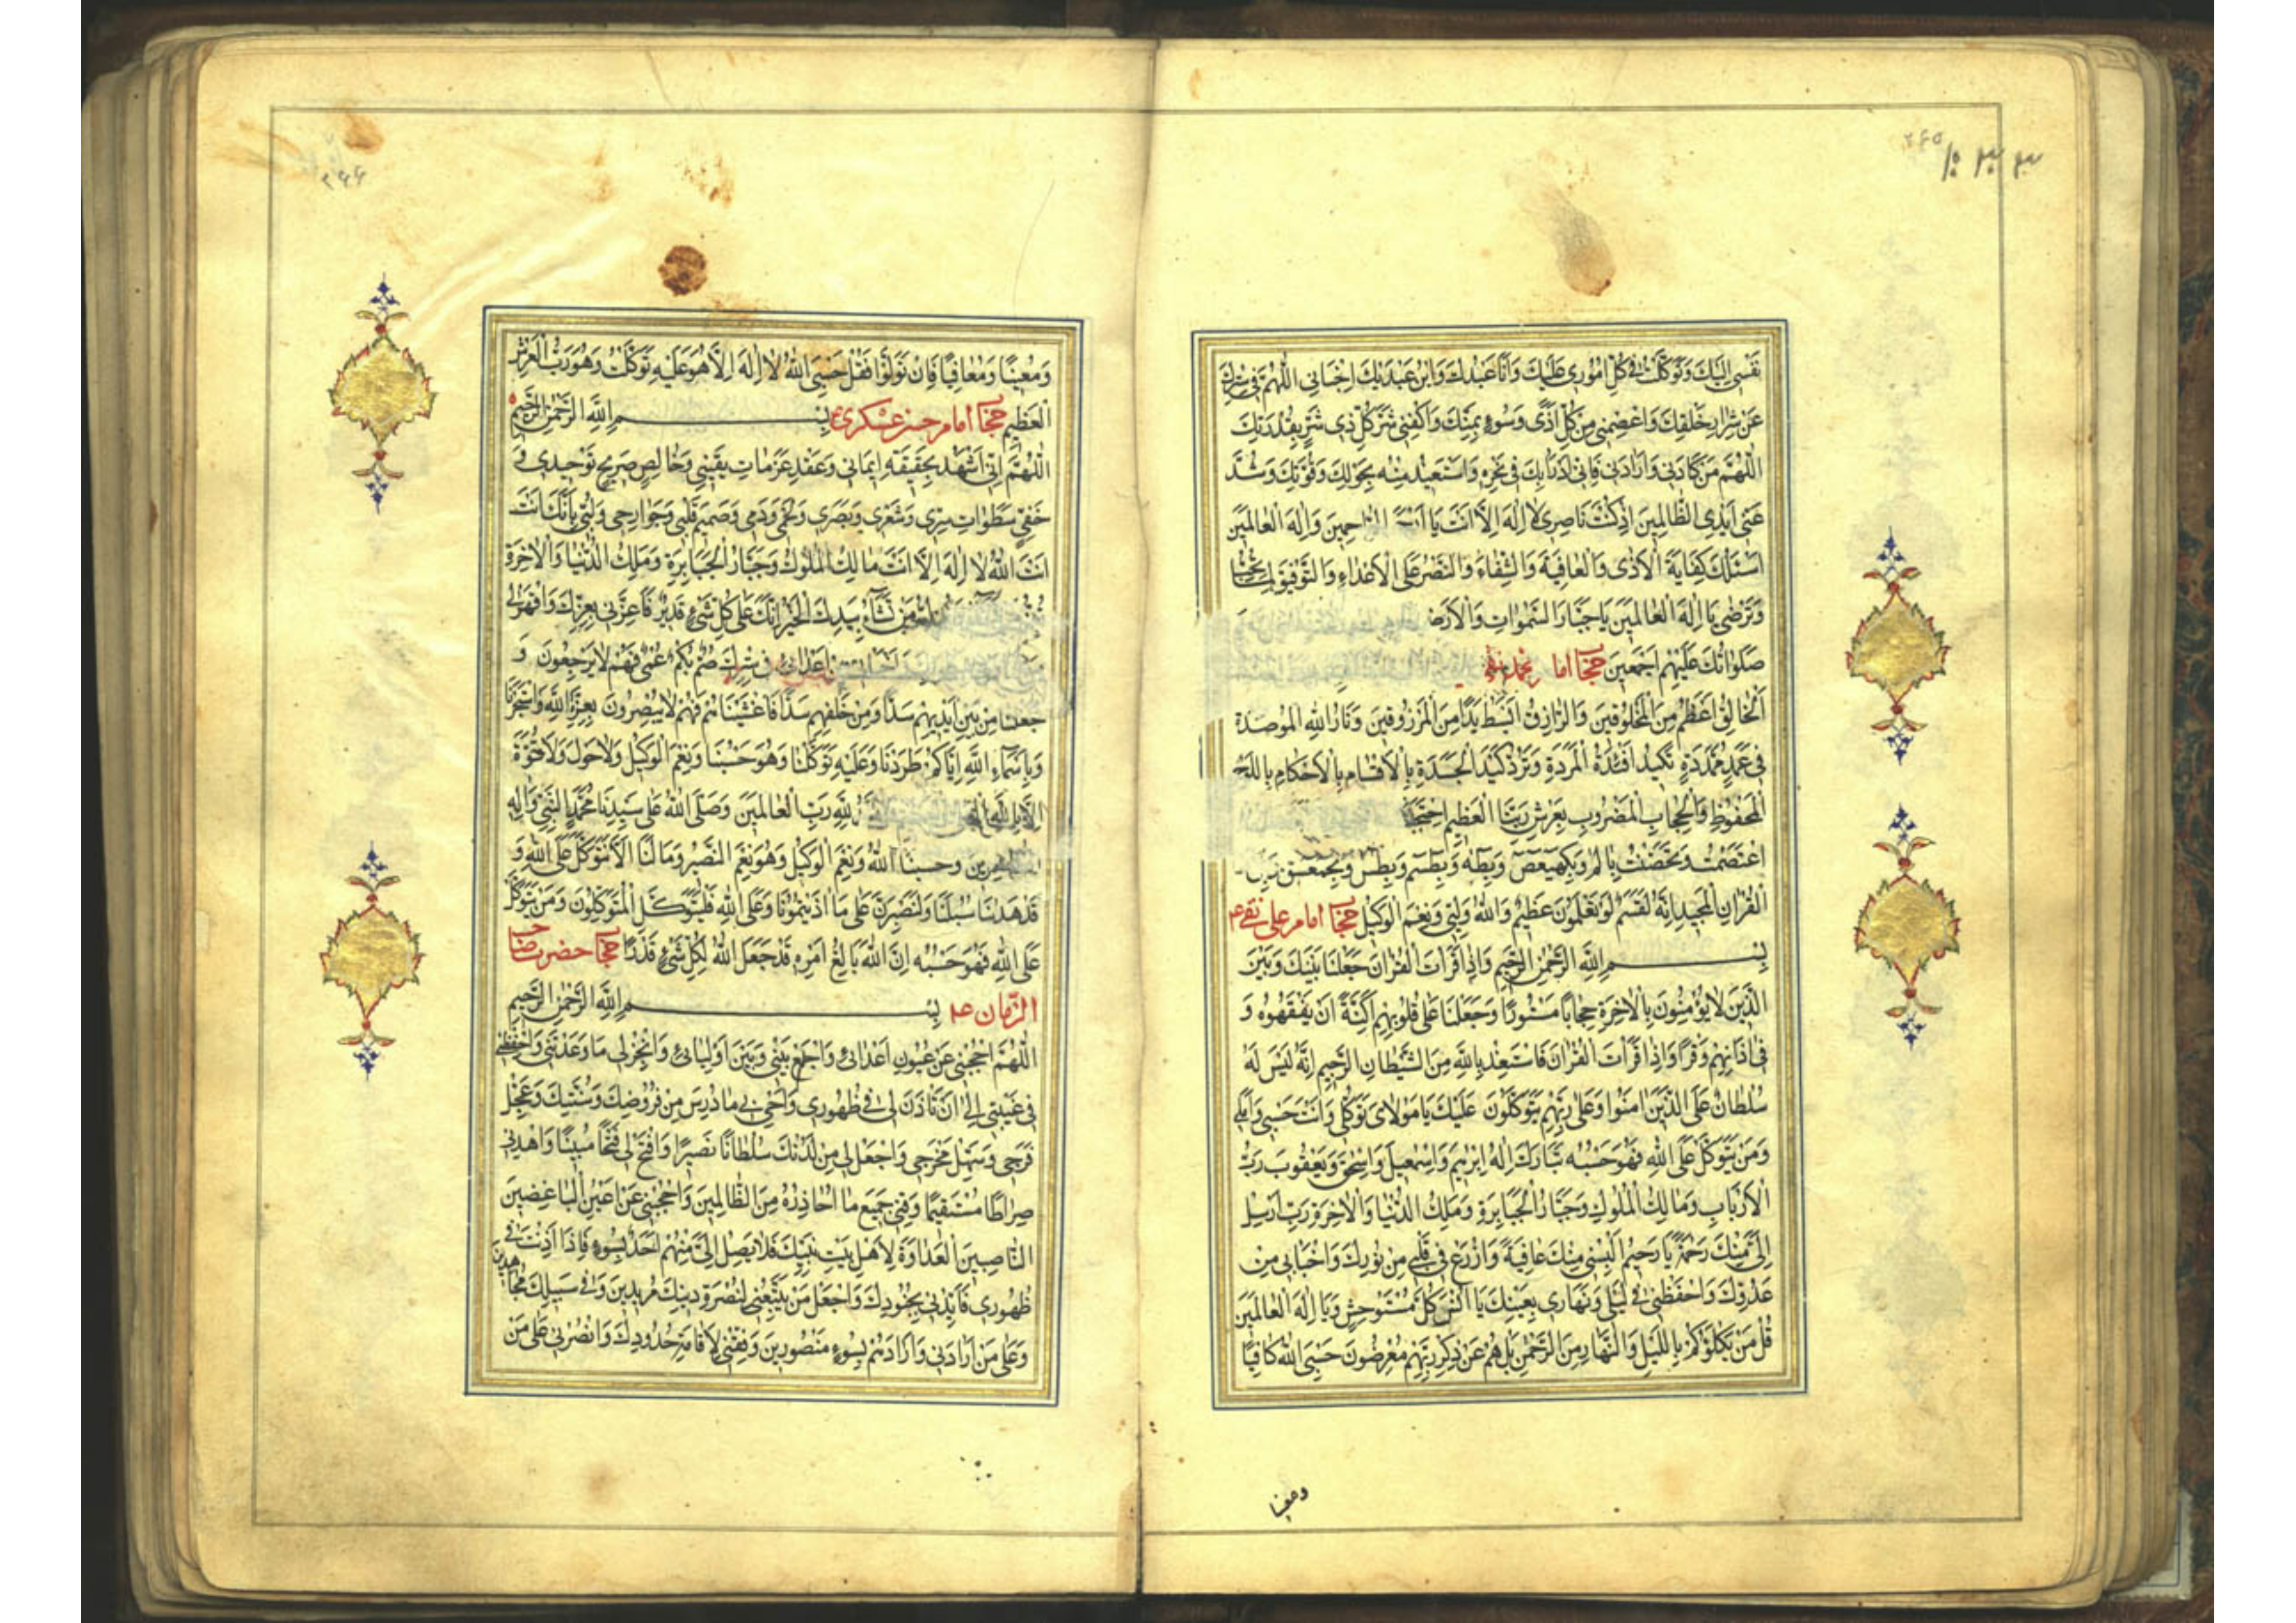 ۲۶۵
نَفْسی اِلَیْكَ وَتَوَكَّلْتُ فی كُلِّ اُمُوری عَلَیْكَ وَاَنَا عَبْدُكَ وَابْنُ عَبْدَیْكَ اِخْبَانی اَللّٰهُمَّ فی سِتْرِكَ
عَنْ شِرَارِ خَلْقِكَ وَاعْصِمْنی مِنْ كُلِّ اَذًی وَسُوءٍ بِمَنِّكَ وَاكْفِنی شَرَّ كُلِّ ذی شَرٍّ بِقُدْرَتِكَ
اَللّٰهُمَّ مَنْ كَادَنی وَاَرَادَنی فَاِنّی اَدْرَأُ بِكَ فی نَحْرِهِ وَاَسْتَعیذُ مِنْهُ بِحَوْلِكَ وَقُوَّتِكَ وَشُدَّ
عَنّی اَیْدِی الظَّالِمینَ اِذْ كُنْتَ نَاصِری لَا اِلٰهَ اِلَّا اَنْتَ یَا اَرْحَمَ الرَّاحِمینَ وَاِلٰهَ الْعَالَمینَ
اَسْئَلُكَ كِفَایَةَ الْاَذٰی وَالْعَافِیَةَ وَالشِّفَاءَ وَالنَّصْرَ عَلَی الْاَعْدَاءِ وَالتَّوْفیقَ لِمَا تُحِبُّ
وَتَرْضٰی یَا اِلٰهَ الْعَالَمینَ یَا جَبَّارَ السَّمٰوَاتِ وَالْاَرَضٖ
صَلَوَاتُكَ عَلَیْهِمْ اَجْمَعینَ حجاب امام محمد تقی
اَلْخَالِقُ اَعْظَمُ مِنَ الْمَخْلُوقینَ وَالرَّازِقُ اَبْسَطُ یَدًا مِنَ الْمَرْزُوقینَ وَنَارُ اللّٰهِ الْمُوصَدَةُ
فی عَمَدٍ مُمَدَّدَةٍ تَكیدُ اَفْئِدَةَ الْمَرَدَةِ وَتَرُدُّ كَیْدَ الْحَسَدَةِ بِالْاَقْسَامِ بِالْاَحْكَامِ بِاللَّوْحِ
الْمَحْفُوظِ وَالْحِجَابِ الْمَضْرُوبِ بِعَرْشِ رَبِّنَا الْعَظیمِ احْتَجَبْتُ
اعْتَصَمْتُ وَتَحَصَّنْتُ بِالم وَبِكهیعص وَبِطه وَبِطسم وَبِطس وَبِحمعسق
الْقُرْاٰنِ الْمَجیدِ اِنَّهُ لَقَسَمٌ لَوْ تَعْلَمُونَ عَظیمٌ وَاللّٰهُ وَلِیّی وَنِعْمَ الْوَكیلُ حجاب امام علی نقی ع
بِسْمِ اللّٰهِ الرَّحْمٰنِ الرَّحیمِ وَاِذَا قَرَأْتَ الْقُرْاٰنَ جَعَلْنَا بَیْنَكَ وَبَیْنَ
الَّذینَ لَا یُؤْمِنُونَ بِالْاٰخِرَةِ حِجَابًا مَسْتُورًا وَجَعَلْنَا عَلٰی قُلُوبِهِمْ اَكِنَّةً اَنْ یَفْقَهُوهُ وَ
فی اٰذَانِهِمْ وَقْرًا وَاِذَا قَرَأْتَ الْقُرْاٰنَ فَاسْتَعِذْ بِاللّٰهِ مِنَ الشَّیْطَانِ الرَّجیمِ اِنَّهُ لَیْسَ لَهُ
سُلْطَانٌ عَلَی الَّذینَ اٰمَنُوا وَعَلٰی رَبِّهِمْ یَتَوَكَّلُونَ عَلَیْكَ یَا مَوْلَایَ تَوَكُّلی وَاَنْتَ حَسْبی وَاَمَلی
وَمَنْ یَتَوَكَّلْ عَلَی اللّٰهِ فَهُوَ حَسْبُهُ تَبَارَكَ اِلٰهُ اِبْرٰهیمَ وَاِسْمٰعیلَ وَاِسْحٰقَ وَیَعْقُوبَ رَبُّ
الْاَرْبَابِ وَمَالِكُ الْمُلُوكِ وَجَبَّارُ الْجَبَابِرَةِ وَمَلِكُ الدُّنْیَا وَالْاٰخِرَةِ رَبِّ اَرْسِلْ
اِلَیَّ مِنْكَ رَحْمَةً یَا رَحیمُ اَلْبِسْنی مِنْكَ عَافِیَةً وَازْرَعْ فی قَلْبی مِنْ نُورِكَ وَاخْبَانی مِنْ
عَدُوِّكَ وَاحْفَظْنی فی لَیْلی وَنَهَاری بِعَیْنِكَ یَا اُنْسَ كُلِّ مُسْتَوْحِشٍ وَیَا اِلٰهَ الْعَالَمینَ
قُلْ مَنْ یَكْلَؤُكُمْ بِاللَّیْلِ وَالنَّهَارِ مِنَ الرَّحْمٰنِ بَلْ هُمْ عَنْ ذِكْرِ رَبِّهِمْ مُعْرِضُونَ حَسْبِیَ اللّٰهُ كَافِیًا
ومعینا
۲۶۶
وَمُعینًا وَمُعَافِیًا فَاِنْ تَوَلَّوْا فَقُلْ حَسْبِیَ اللّٰهُ لَا اِلٰهَ اِلَّا هُوَ عَلَیْهِ تَوَكَّلْتُ وَهُوَ رَبُّ الْعَرْشِ
الْعَظیمِ حجاب امام حسن عسكری ع بِسْمِ اللّٰهِ الرَّحْمٰنِ الرَّحیمِ
اَللّٰهُمَّ اِنّی اَشْهَدُ بِحَقیقَةِ ایمَانی وَعَقْدِ عَزَمَاتِ یَقینی وَخَالِصِ صَریحِ تَوْحیدی وَ
خَفِیِّ سَطَوَاتِ سِرّی وَشَعْری وَبَصَری وَلَحْمی وَدَمی وَصَمیمِ قَلْبی وَجَوَارِحی وَلُبّی بِاَنَّكَ اَنْتَ
اَنْتَ اللّٰهُ لَا اِلٰهَ اِلَّا اَنْتَ مَالِكُ الْمُلُوكِ وَجَبَّارُ الْجَبَابِرَةِ وَمَلِكُ الدُّنْیَا وَالْاٰخِرَةِ
مَنْ تَشَاءُ بِیَدِكَ الْخَیْرُ اِنَّكَ عَلٰی كُلِّ شَیْءٍ قَدیرٌ فَاَعِزَّنی بِعِزِّكَ وَاقْهَرْ لی
اَعْدَائی فی سِتْرِكَ صُمٌّ بُكْمٌ عُمْیٌ فَهُمْ لَا یَرْجِعُونَ وَ
جَعَلْنَا مِنْ بَیْنِ اَیْدیهِمْ سَدًّا وَمِنْ خَلْفِهِمْ سَدًّا فَاَغْشَیْنَاهُمْ فَهُمْ لَا یُبْصِرُونَ بِعِزَّةِ اللّٰهِ وَاسْتَجَرْنَا
وَبِاَسْمَاءِ اللّٰهِ اِیَّاكُمْ طَرَدْنَا وَعَلَیْهِ تَوَكَّلْنَا وَهُوَ حَسْبُنَا وَنِعْمَ الْوَكیلُ وَلَا حَوْلَ وَلَا قُوَّةَ
اِلَّا بِاللّٰهِ لِلّٰهِ رَبِّ الْعَالَمینَ وَصَلَّی اللّٰهُ عَلٰی سَیِّدِنَا مُحَمَّدٍ النَّبِیِّ وَاٰلِهِ
الطَّاهِرینَ وَحَسْبُنَا اللّٰهُ وَنِعْمَ الْوَكیلُ وَهُوَ نِعْمَ النَّصیرُ وَمَا لَنَا اَلَّا نَتَوَكَّلَ عَلَی اللّٰهِ وَ
قَدْ هَدٰنَا سُبُلَنَا وَلَنَصْبِرَنَّ عَلٰی مَا اٰذَیْتُمُونَا وَعَلَی اللّٰهِ فَلْیَتَوَكَّلِ الْمُتَوَكِّلُونَ وَمَنْ یَتَوَكَّلْ
عَلَی اللّٰهِ فَهُوَ حَسْبُهُ اِنَّ اللّٰهَ بَالِغُ اَمْرِهِ قَدْ جَعَلَ اللّٰهُ لِكُلِّ شَیْءٍ قَدْرًا حجاب حضرت صاحب
الزّمان ع بِسْمِ اللّٰهِ الرَّحْمٰنِ الرَّحیمِ
اَللّٰهُمَّ احْجُبْنی عَنْ عُیُونِ اَعْدَائی وَاجْمَعْ بَیْنی وَبَیْنَ اَوْلِیَائی وَاَنْجِزْ لی مَا وَعَدْتَنی وَاحْفَظْنی
فی غَیْبَتی اِلٰی اَنْ تَأْذَنَ لی فی ظُهُوری وَاَحْیِ بی مَا دُرِسَ مِنْ فُرُوضِكَ وَسُنَنِكَ وَعَجِّلْ
فَرَجی وَسَهِّلْ مَخْرَجی وَاجْعَلْ لی مِنْ لَدُنْكَ سُلْطَانًا نَصیرًا وَافْتَحْ لی فَتْحًا مُبینًا وَاهْدِنی
صِرَاطًا مُسْتَقیمًا وَقِنی جَمیعَ مَا اُحَاذِرُهُ مِنَ الظَّالِمینَ وَاحْجُبْنی عَنْ اَعْیُنِ الْبَاغِضینَ
النَّاصِبینَ الْعَدَاوَةَ لِاَهْلِ بَیْتِ نَبِیِّكَ فَلَا یَصِلُ اِلَیَّ مِنْهُمْ اَحَدٌ بِسُوءٍ فَاِذَا اَذِنْتَ فی
ظُهُوری فَاَیِّدْنی بِجُنُودِكَ وَاجْعَلْ مَنْ یَتَّبِعُنی لِنُصْرَةِ دینِكَ مُریدینَ وَفی سَبیلِكَ مُجَاهِدینَ
وَعَلٰی مَنْ اَرَادَنی وَاَرَادَهُمْ بِسُوءٍ مَنْصُورینَ وَوَفِّقْنی لِاِقَامَةِ حُدُودِكَ وَانْصُرْنی عَلٰی مَنْ